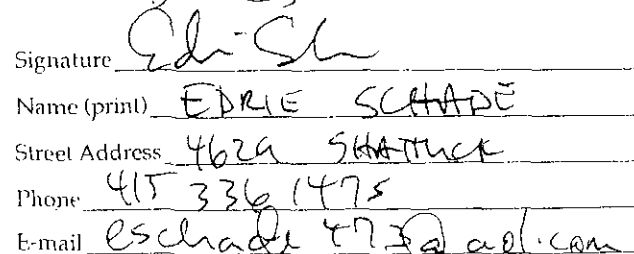 Signature Edri Sh
Name (print) EDRIE SCHADE
Street Address 4629 SHATTUCK
Phone 415 336 1475
E-mail eschade473@aol.com